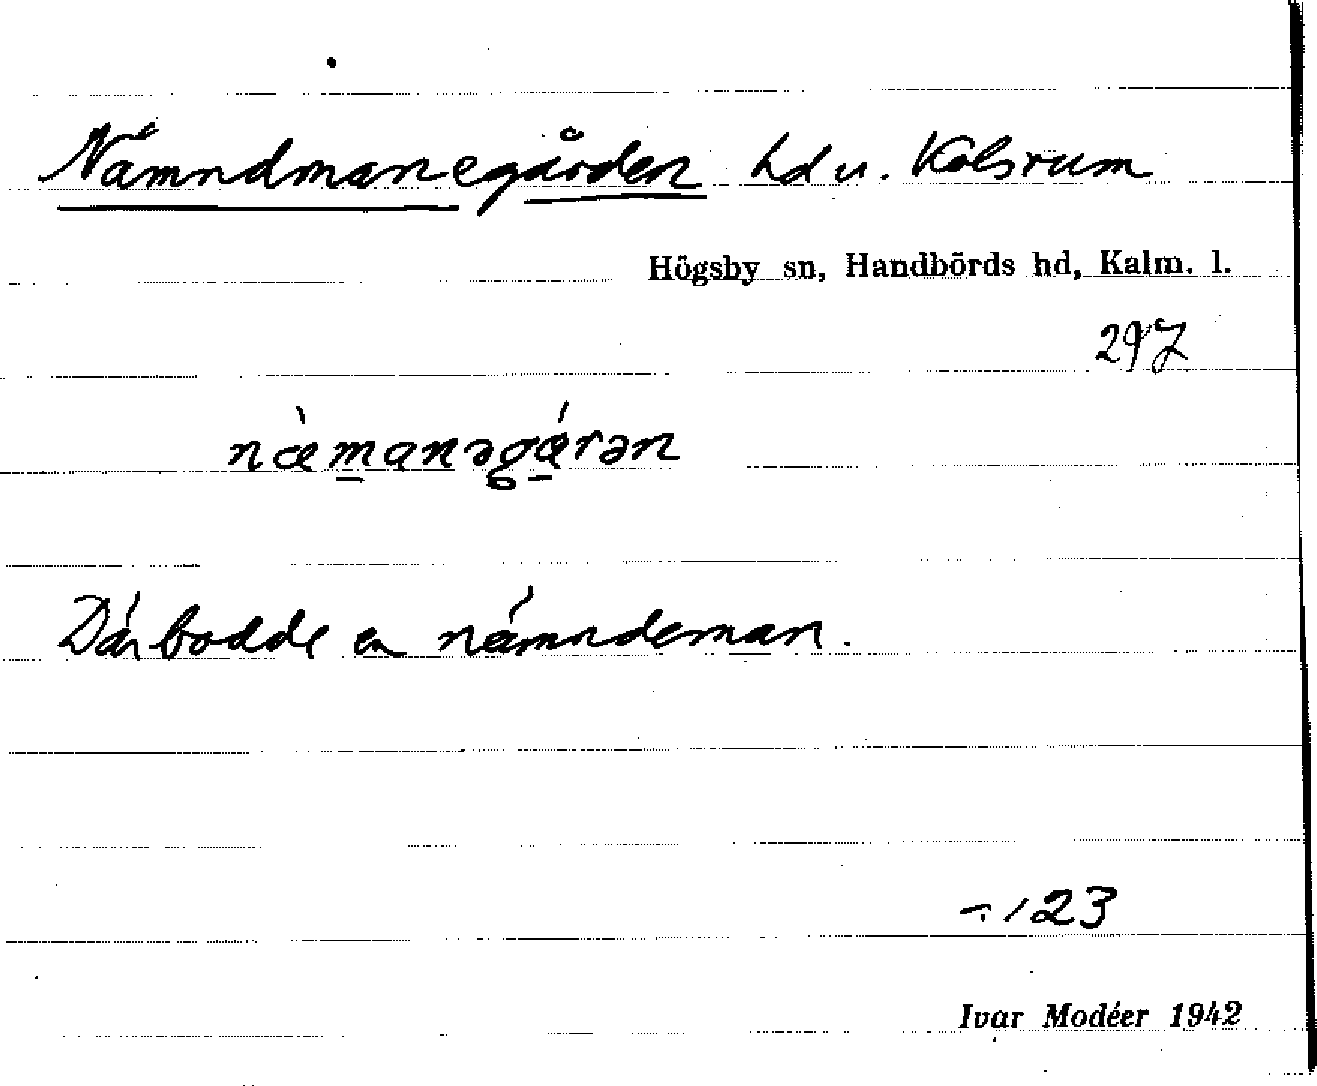 Nämndmanegården hd u. Kolsrum
Högsby sn, Handbörds hd, Kalm. l.
297
næ̀manəgárən
Där bodde en nämndeman.
÷ 123
Ivar Modéer 1942